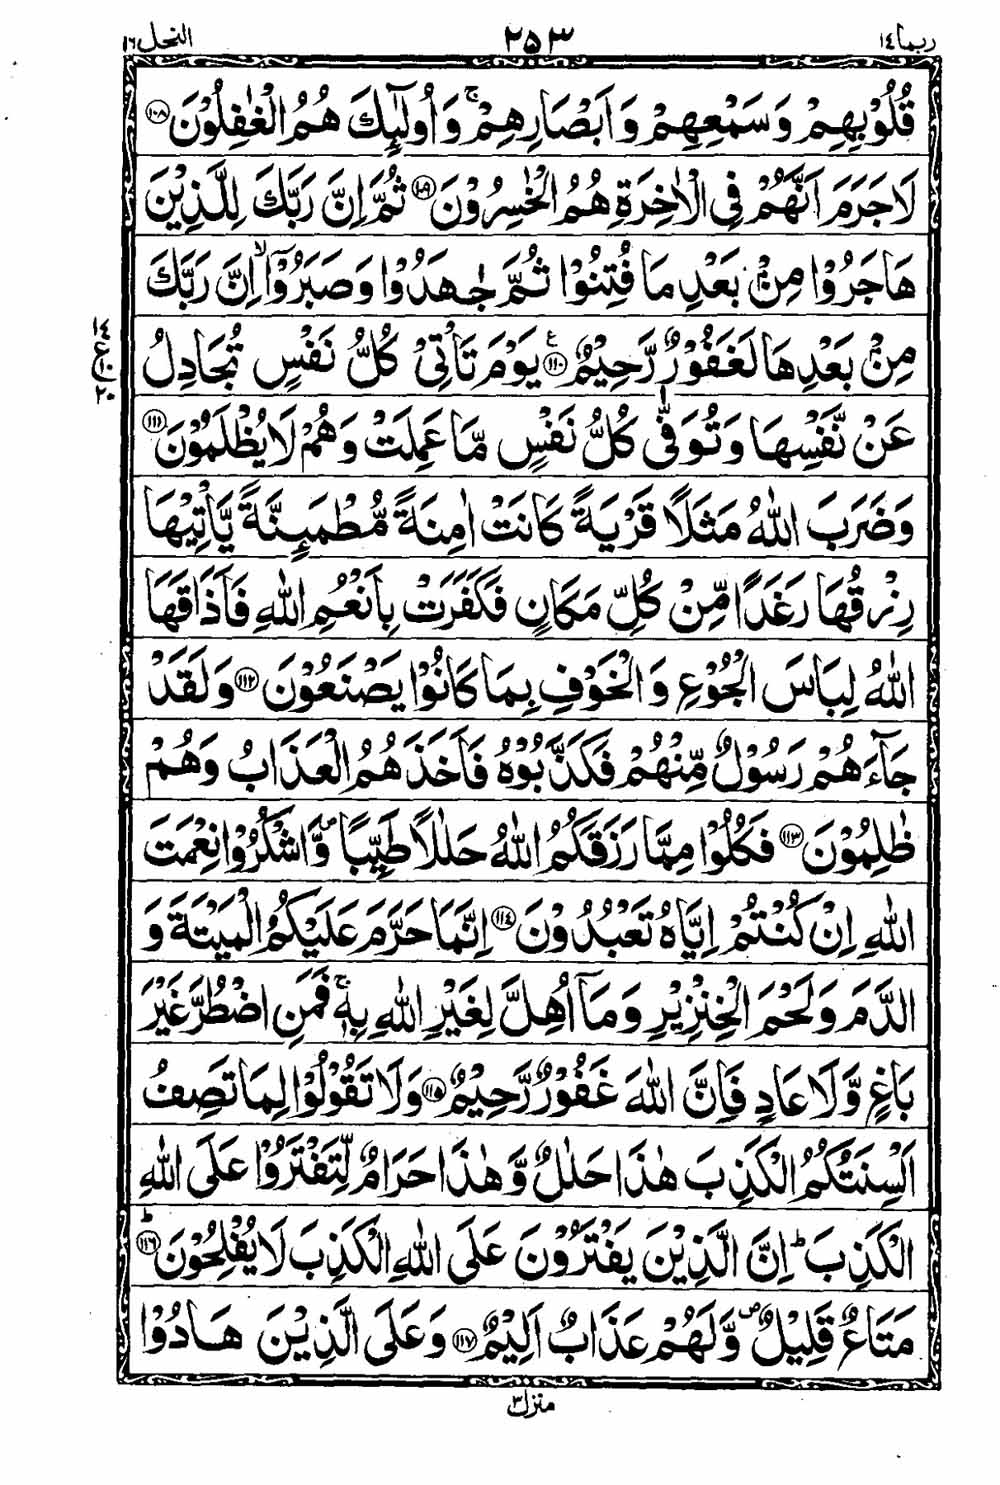 ربما ١٤
٢٥٣
النحل ١٦
قُلُوْبِهِمْ وَسَمْعِهِمْ وَاَبْصَارِهِمْ ۚ وَاُولٰٓئِكَ هُمُ الْغٰفِلُوْنَ ﴿١٠٨﴾
لَا جَرَمَ اَنَّهُمْ فِي الْاٰخِرَةِ هُمُ الْخٰسِرُوْنَ ﴿١٠٩﴾ ثُمَّ اِنَّ رَبَّكَ لِلَّذِيْنَ
هَاجَرُوْا مِنْۢ بَعْدِ مَا فُتِنُوْا ثُمَّ جٰهَدُوْا وَصَبَرُوْۤا ۙ اِنَّ رَبَّكَ
مِنْۢ بَعْدِهَا لَغَفُوْرٌ رَّحِيْمٌ ﴿١١٠﴾ ع يَوْمَ تَاْتِيْ كُلُّ نَفْسٍ تُجَادِلُ
١٤ ع ١٠ ٢٠
عَنْ نَّفْسِهَا وَتُوَفّٰى كُلُّ نَفْسٍ مَّا عَمِلَتْ وَهُمْ لَا يُظْلَمُوْنَ ﴿١١١﴾
وَضَرَبَ اللّٰهُ مَثَلًا قَرْيَةً كَانَتْ اٰمِنَةً مُّطْمَئِنَّةً يَّاْتِيْهَا
رِزْقُهَا رَغَدًا مِّنْ كُلِّ مَكَانٍ فَكَفَرَتْ بِاَنْعُمِ اللّٰهِ فَاَذَاقَهَا
اللّٰهُ لِبَاسَ الْجُوْعِ وَالْخَوْفِ بِمَا كَانُوْا يَصْنَعُوْنَ ﴿١١٢﴾ وَلَقَدْ
جَآءَهُمْ رَسُوْلٌ مِّنْهُمْ فَكَذَّبُوْهُ فَاَخَذَهُمُ الْعَذَابُ وَهُمْ
ظٰلِمُوْنَ ﴿١١٣﴾ فَكُلُوْا مِمَّا رَزَقَكُمُ اللّٰهُ حَلٰلًا طَيِّبًا ۖ وَّاشْكُرُوْا نِعْمَتَ
اللّٰهِ اِنْ كُنْتُمْ اِيَّاهُ تَعْبُدُوْنَ ﴿١١٤﴾ اِنَّمَا حَرَّمَ عَلَيْكُمُ الْمَيْتَةَ وَ
الدَّمَ وَلَحْمَ الْخِنْزِيْرِ وَمَاۤ اُهِلَّ لِغَيْرِ اللّٰهِ بِهٖ ۚ فَمَنِ اضْطُرَّ غَيْرَ
بَاغٍ وَّلَا عَادٍ فَاِنَّ اللّٰهَ غَفُوْرٌ رَّحِيْمٌ ﴿١١٥﴾ وَلَا تَقُوْلُوْا لِمَا تَصِفُ
اَلْسِنَتُكُمُ الْكَذِبَ هٰذَا حَلٰلٌ وَّهٰذَا حَرَامٌ لِّتَفْتَرُوْا عَلَى اللّٰهِ
الْكَذِبَ ؕ اِنَّ الَّذِيْنَ يَفْتَرُوْنَ عَلَى اللّٰهِ الْكَذِبَ لَا يُفْلِحُوْنَ ؕ ﴿١١٦﴾
مَتَاعٌ قَلِيْلٌ ۖ وَّلَهُمْ عَذَابٌ اَلِيْمٌ ﴿١١٧﴾ وَعَلَى الَّذِيْنَ هَادُوْا
منزل ٣